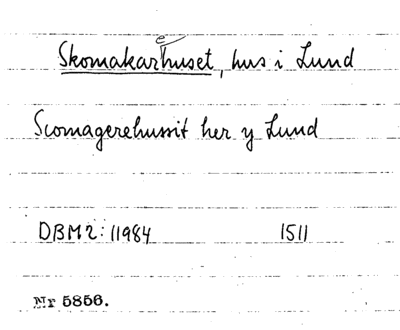 Skomakarehuset, hus i Lund
Scomagerehussit her y Lund
DBM2: 11984 1511
Nr 5856.